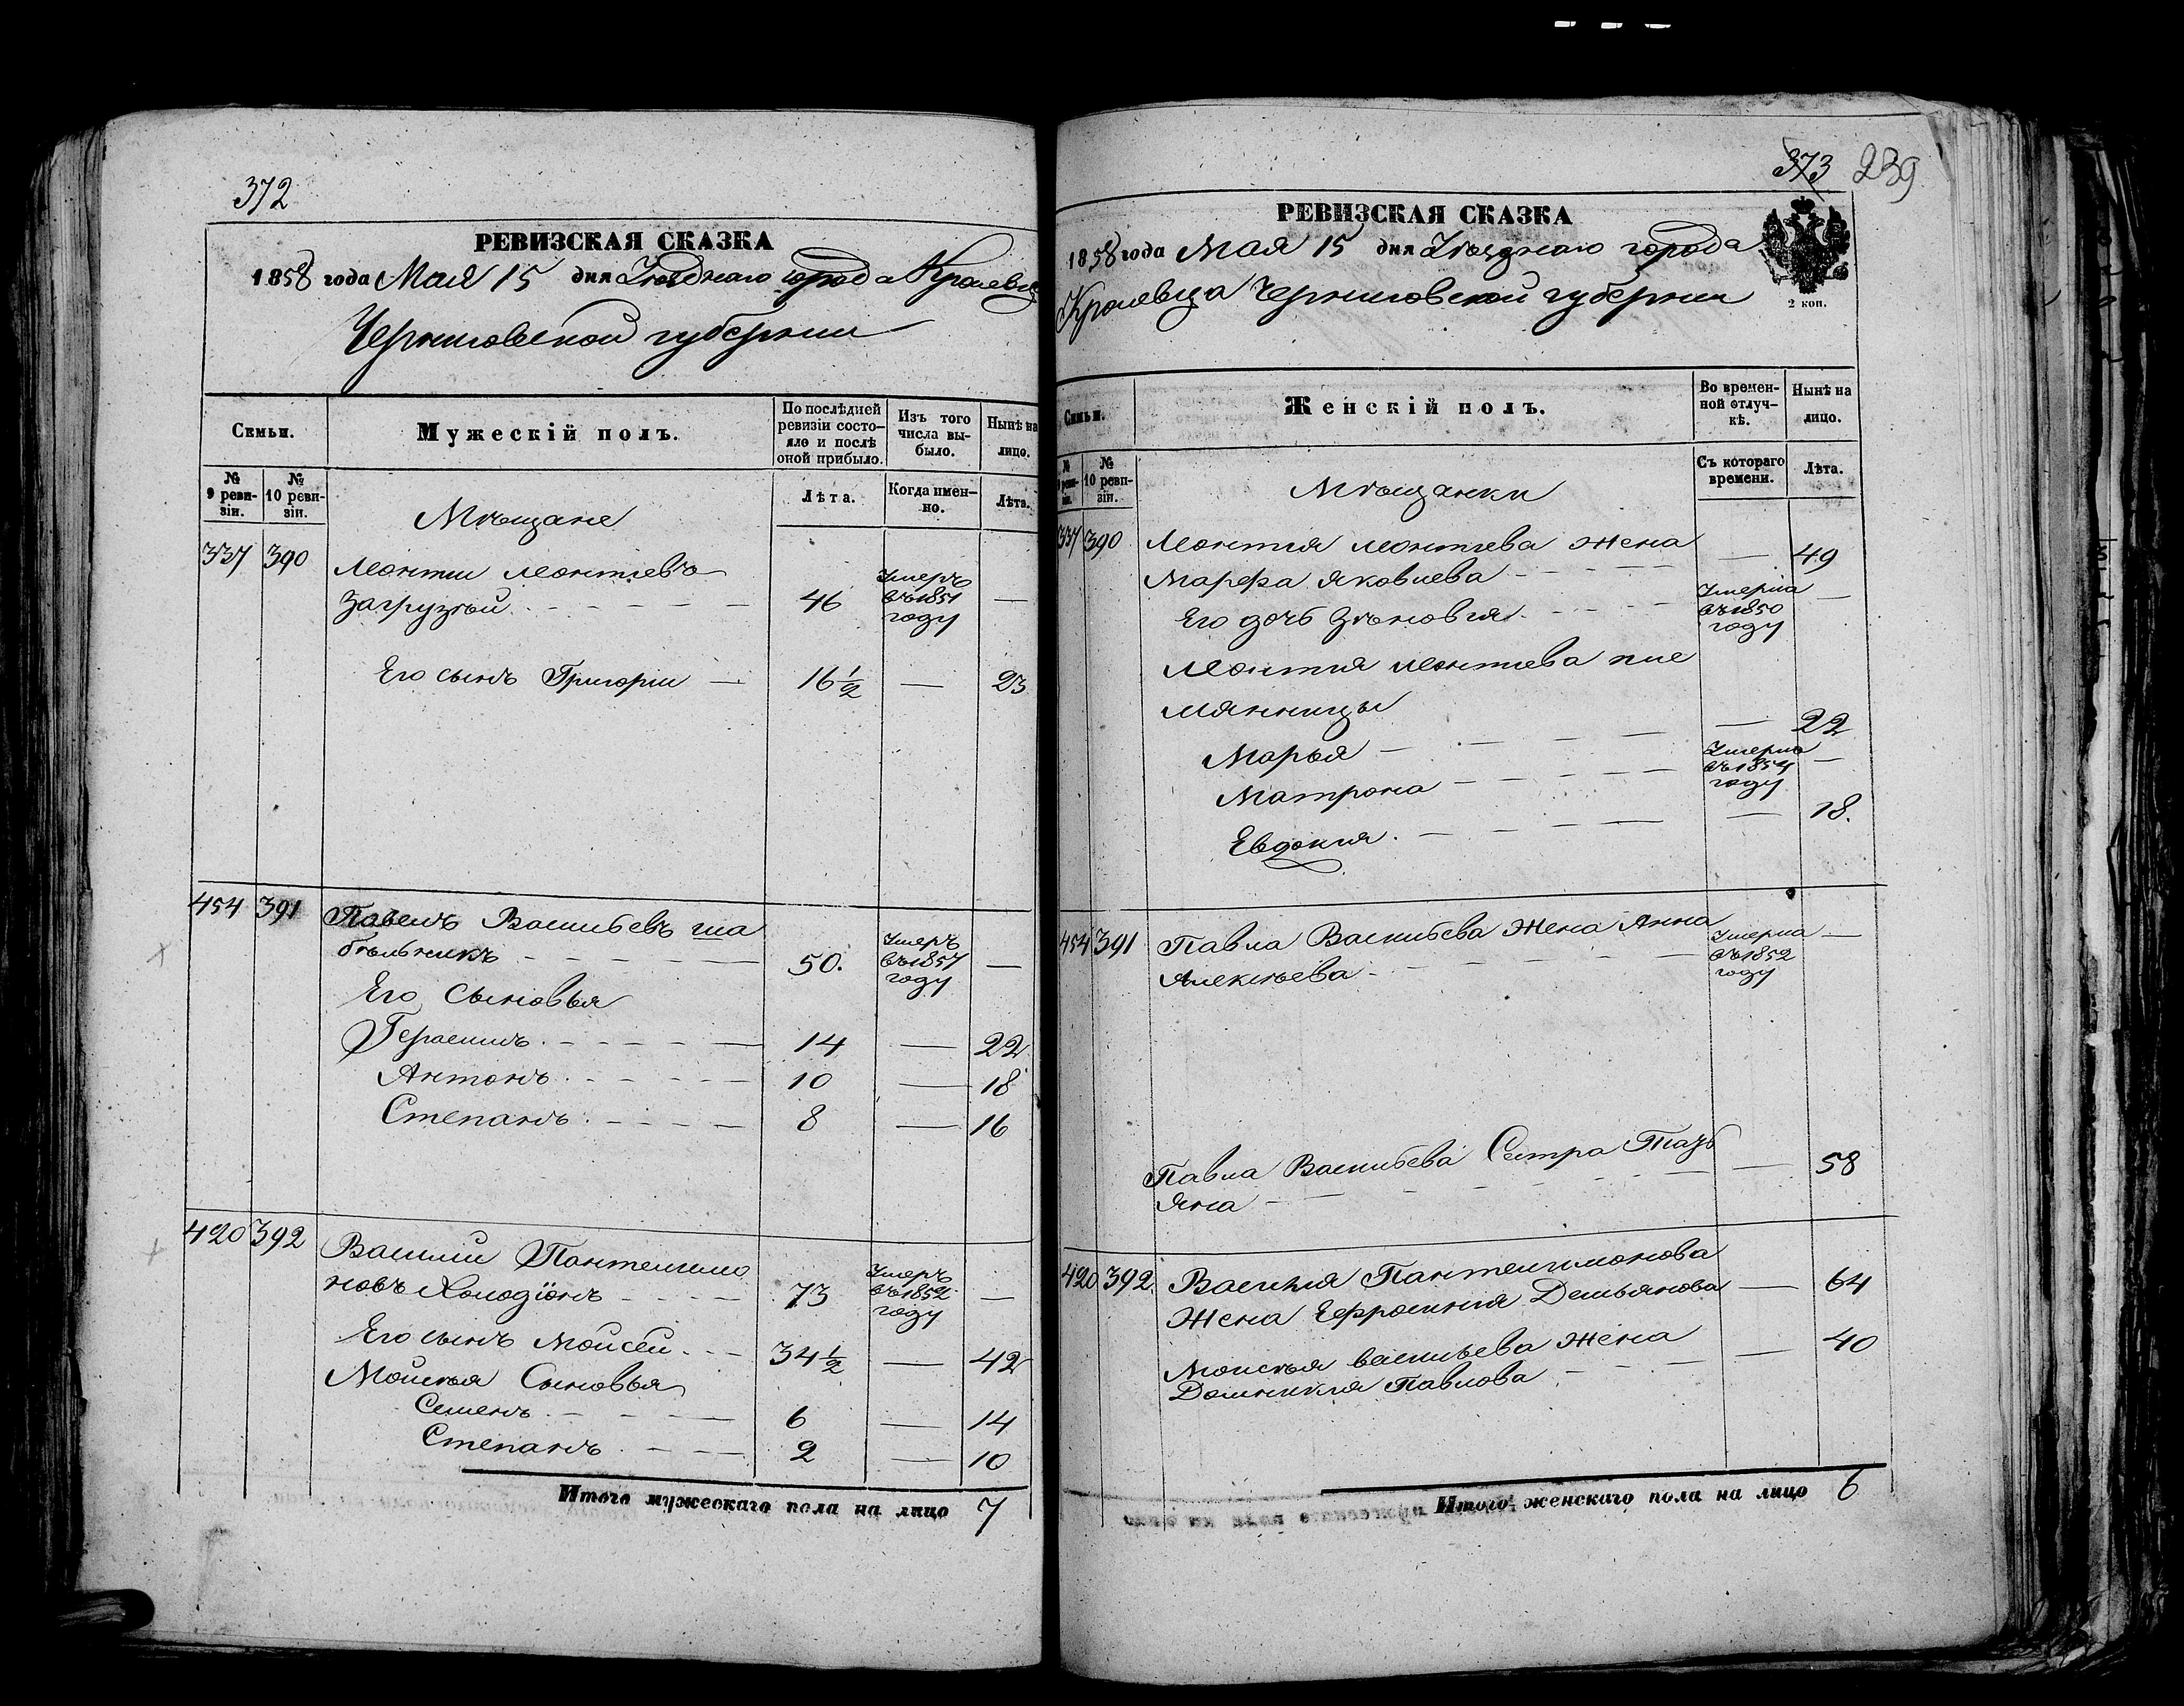 372
РЕВИЗСКАЯ СКАЗКА
1858 года Мая 15 дня Уѣзднаго города Кролевца
Черниговской губерніи
Семьи.
Мужескій полъ.
По послѣдней ревизіи состояло и послѣ оной прибыло.
Изъ того числа выбыло.
Нынѣ на лицо.
№ 9 ревизіи.
№ 10 ревизіи.
Мѣщане
Лѣта.
Когда именно.
Лѣта.
337 390 Леонтіи Леонтіевъ
Загрузкий 46 Умеръ въ 1851 году —
Его сынъ Григоріи — 16 1/2 — 23
454 391 Павелъ Васильевъ Ша
бѣльникъ 50. Умеръ въ 1857 году —
Его Сыновья
Герасимъ 14 — 22
Антонъ 10 — 18
Степанъ 8 — 16
420 392 Василіи Пантелимо
новъ Холодіонъ 73 Умеръ въ 1852 году —
Его сынъ Моисеи 34 1/2 — 42
Моисея Сыновья
Семенъ 6 — 14
Степанъ 2 — 10
Итого мужескаго пола на лицо 7
373 239
РЕВИЗСКАЯ СКАЗКА
1858 года Мая 15 дня Уѣзднаго города
Кролевца Черниговской губерніи
2 коп.
Семьи.
Женскій полъ.
Во временной отлучкѣ.
Нынѣ на лицо.
№ 9 ревизіи.
№ 10 ревизіи.
Мѣщанки
Съ котораго времени.
Лѣта.
337 390 Леонтія Леонтіева жена
Марфа Яковлева — 49
Его дочь Зѣновія Умерла въ 1850 году —
Леонтія Леонтіева пле
мянницы
Марья — 22
Матрона Умерла въ 1854 году —
Евдокия — 18.
454 391 Павла Васильева жена Анна
Алексѣева Умерла въ 1852 году —
Павла Васильева Сестра Тать
яна — 58
420 392. Василія Пантелимонова
Жена Ефросинія Демьянова — 64
Моисѣя Васильева жена
Домникія Павлова — 40
Итого женскаго пола на лицо 6